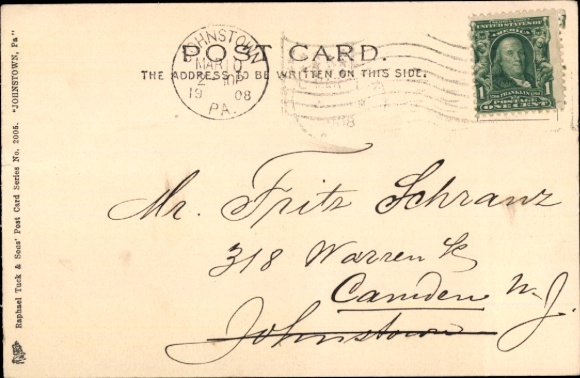 POST CARD.
THE ADDRESS TO BE WRITTEN ON THIS SIDE.
JOHNSTOWN
MAR 10
2 - PM
19 08
PA.
UNITED STATES OF
AMERICA
FRANKLIN
1 POSTAGE 1
ONE CENT
Mr. Fritz Schranz
318 Warren St
Camden N-J.
Johnstown
Raphael Tuck & Sons' Post Card Series No. 2005. "JOHNSTOWN, Pa"